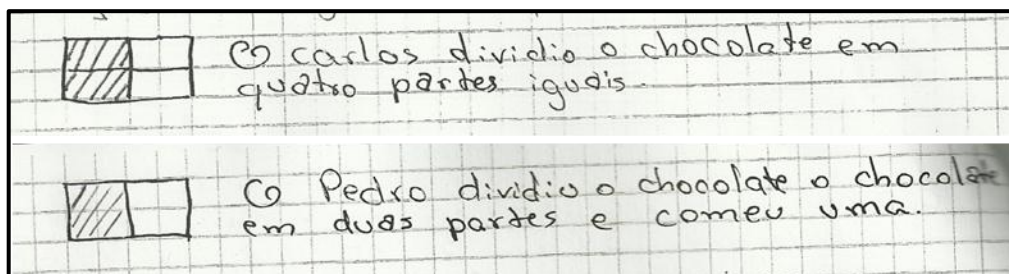 O carlos dividio o chocolate em
quatro partes iguais.
O Pedro dividio o chocolate o chocolate
em duas partes e comeu uma.